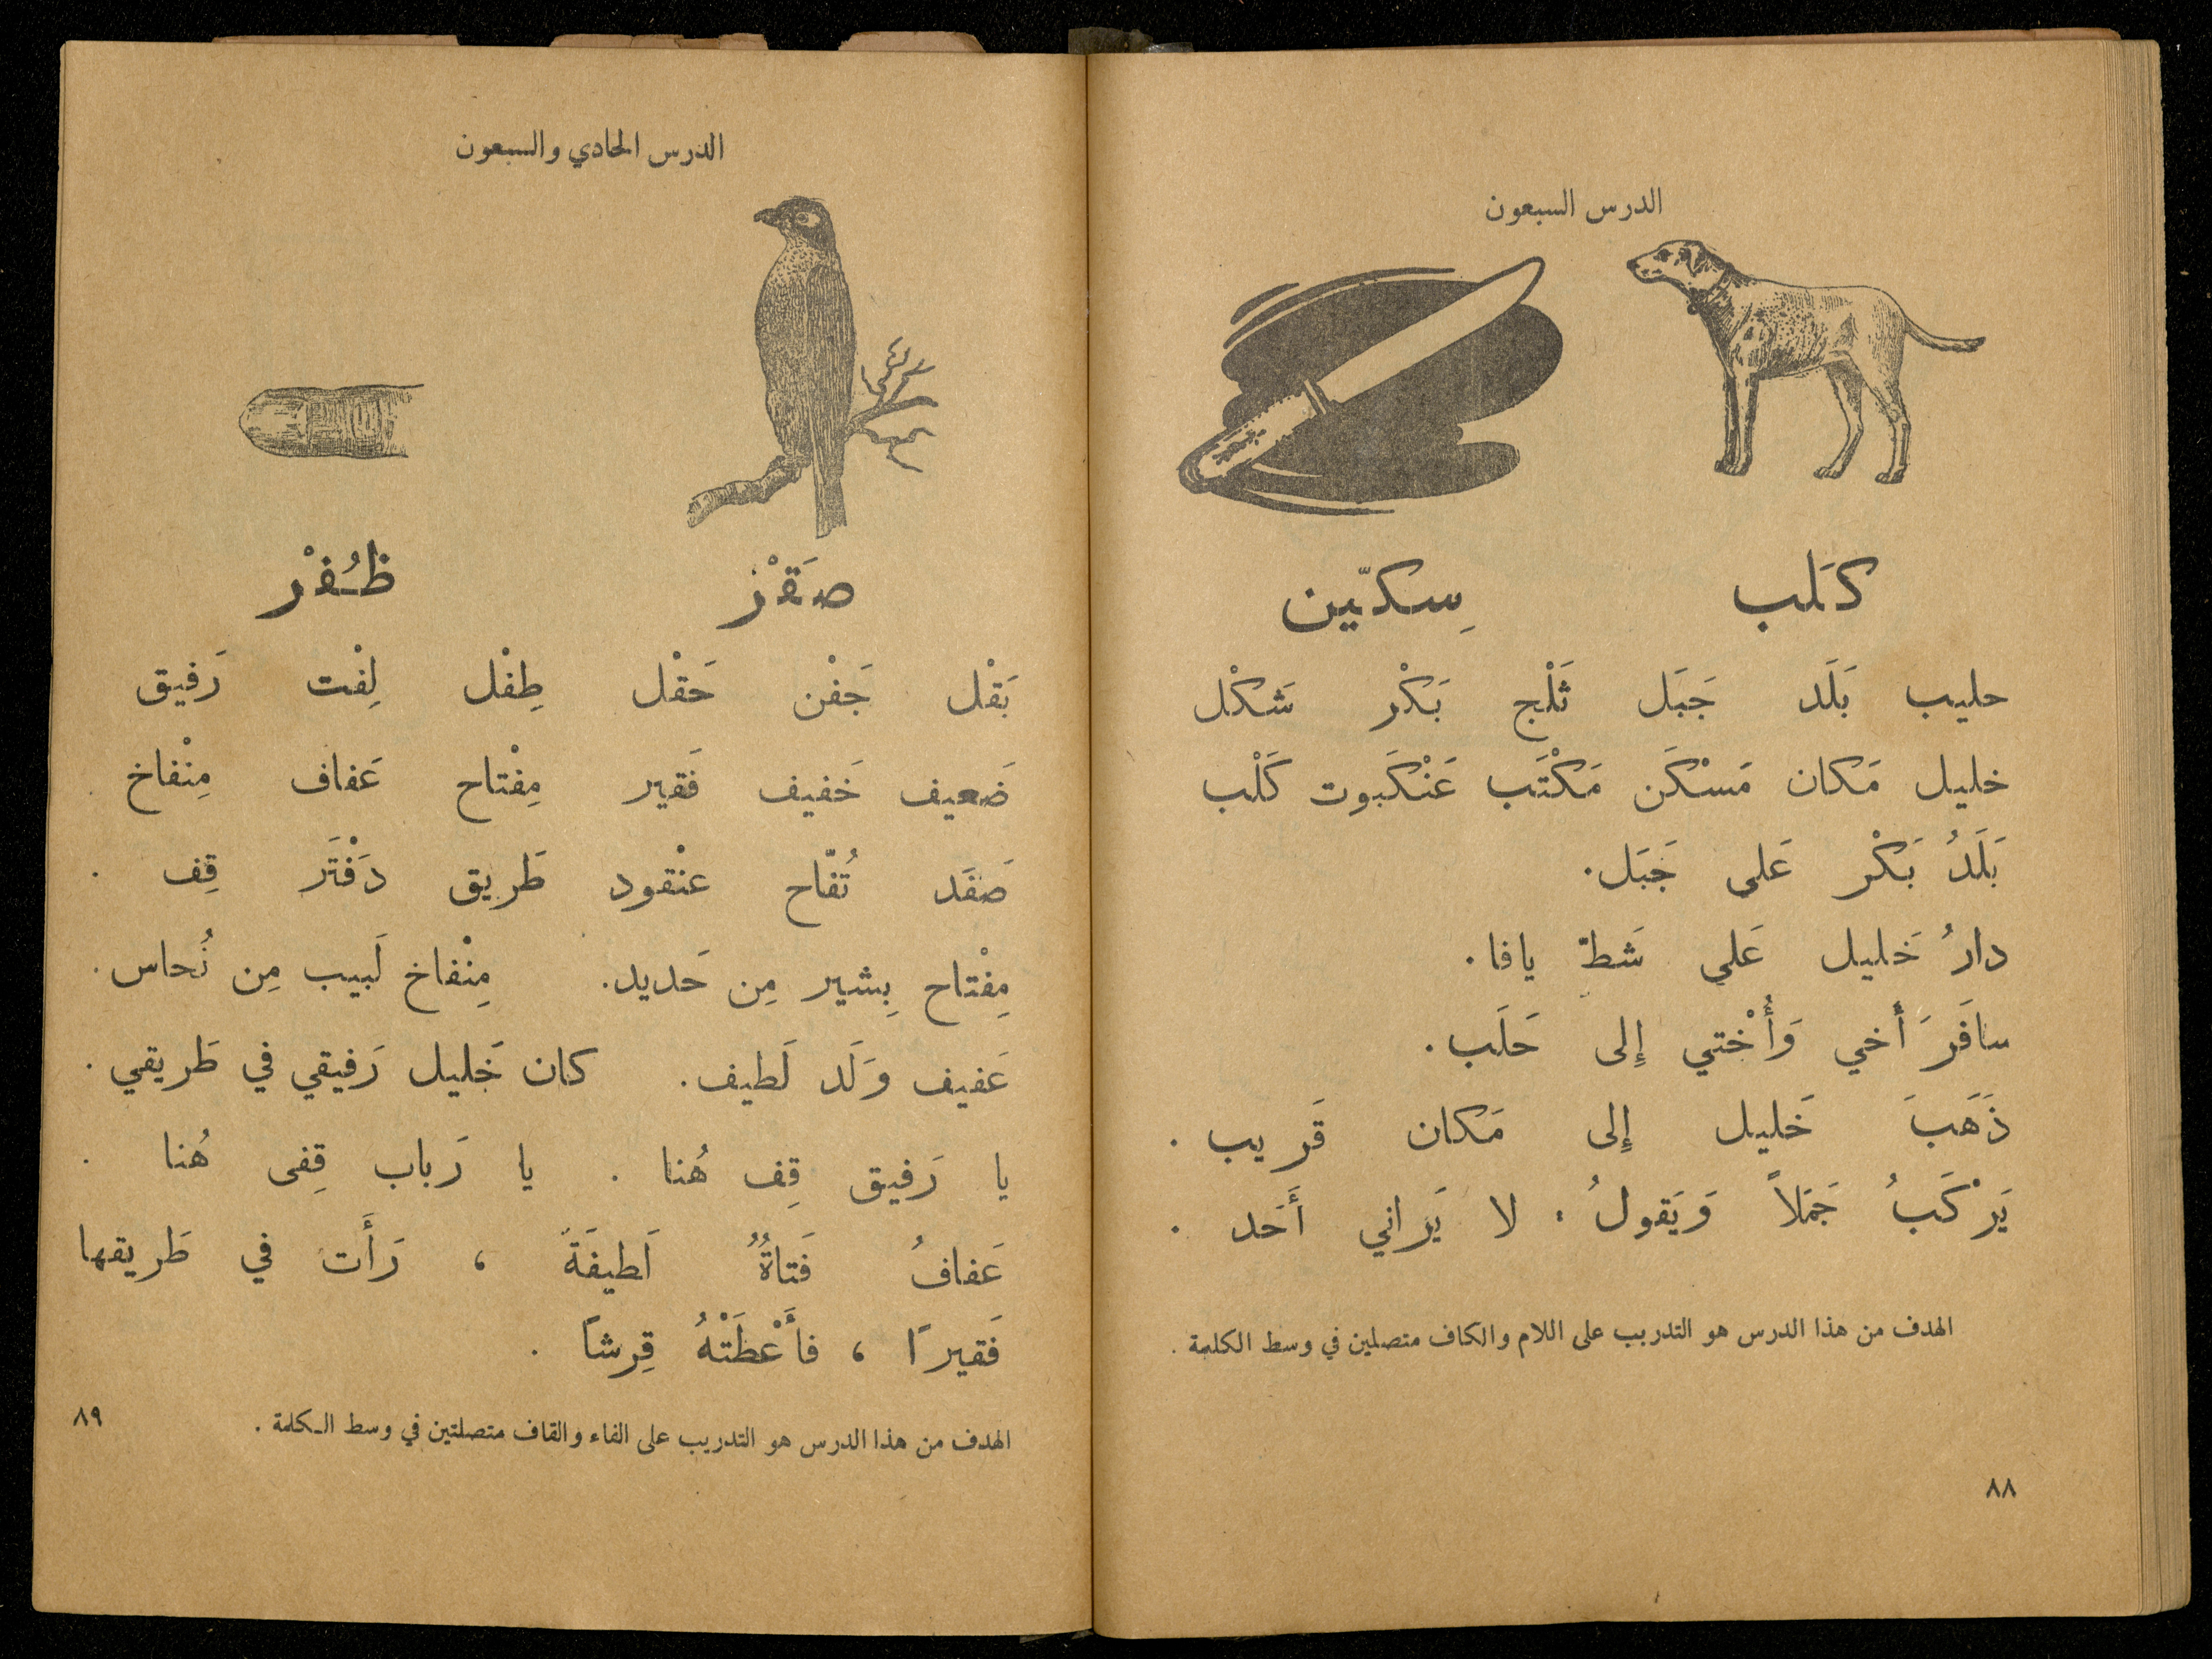 الدرس السبعون
كَلب سِكّين
حليب بَلَد جَبَل ثَلْج بَكْر شَكْل
خليل مَكان مَسْكَن مَكْتَب عَنْكَبوت كَلْب
بَلَدُ بَكْر عَلى جَبَل.
دارُ خَليل عَلى شَطّ يافا.
سافَرَ أَخي وَأُخْتي إِلى حَلَب.
ذَهَبَ خَليل إِلى مَكان قَريب.
يَرْكَبُ جَمَلاً وَيَقولُ: لا يَراني أَحَد.
الهدف من هذا الدرس هو التدريب على اللام والكاف متصلين في وسط الكلمة.
٨٨
الدرس الحادي والسبعون
صَقْر ظُفْر
بَقْل جَفْن حَقْل طِفْل لِفْت رَفيق
ضَعيف خَفيف فَقير مِفْتاح عَفاف مِنْفاخ
صَفَد تُفّاح عنْقود طَريق دَفْتَر قِف.
مِفْتاح بِشير مِن حَديد. مِنْفاخ لَبيب مِن نُحاس.
عَفيف وَلَد لَطيف. كان خَليل رَفيقي في طَريقي.
يا رَفيق قِف هُنا. يا رَباب قِفى هُنا.
عَفافُ فَتاةٌ لَطيفَةٌ، رَأَت في طَريقها
فَقيرًا، فأَعْطَتْهُ قِرشاً.
الهدف من هذا الدرس هو التدريب على الفاء والقاف متصلتين في وسط الكلمة.
٨٩